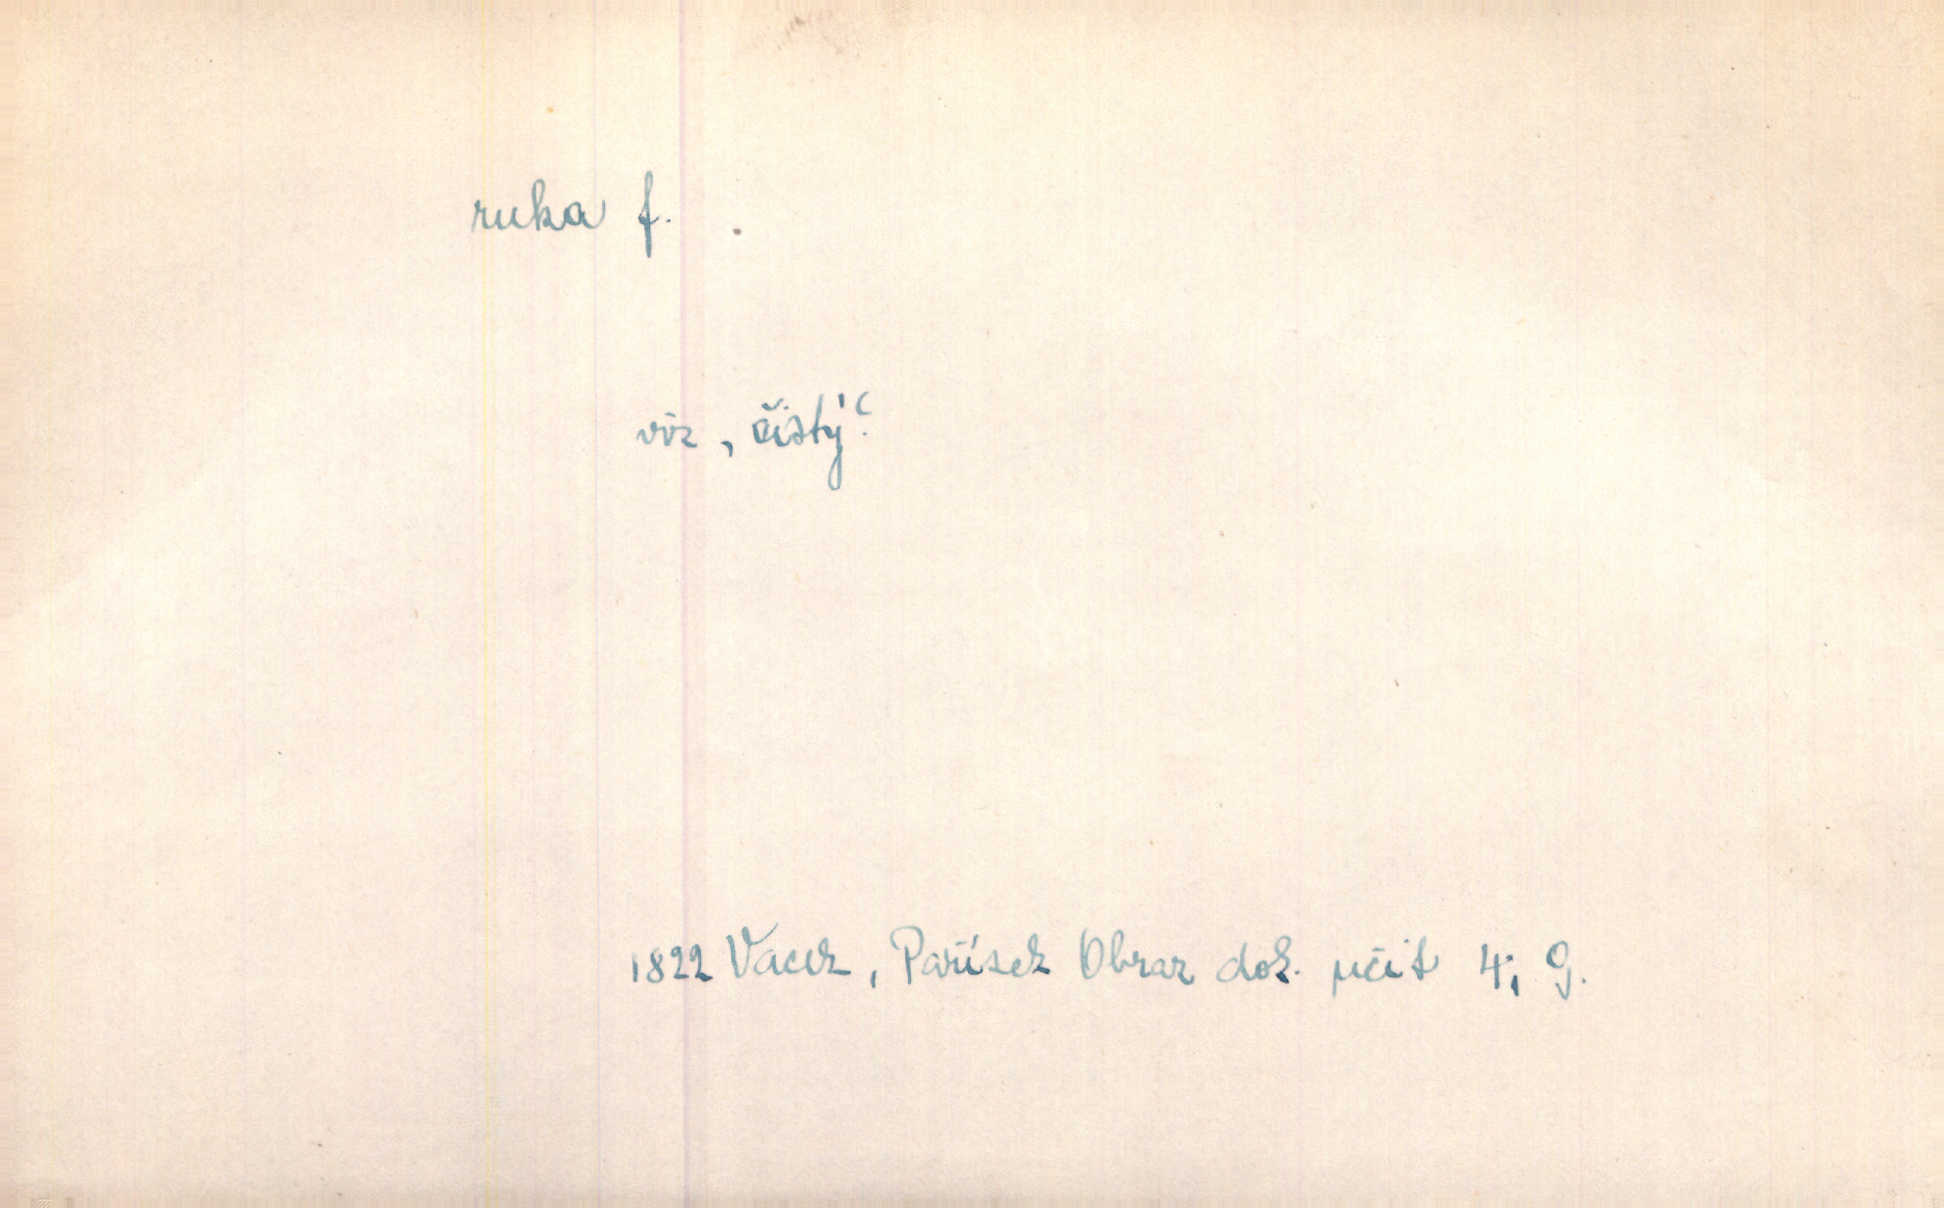 ruka f.
viz ‚čistý‘.
1822 Vacek, Pařízek Obraz dok. učit 4, 9.